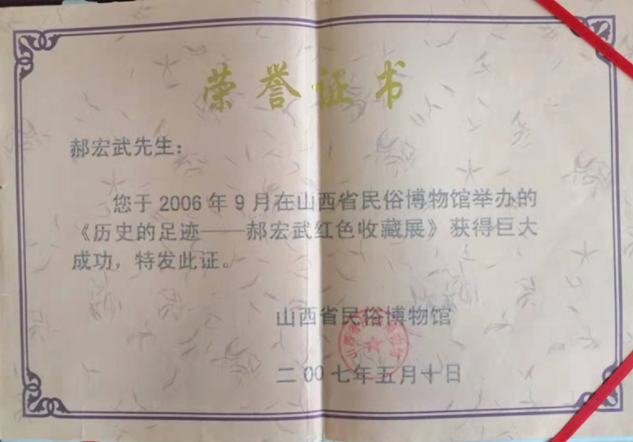 荣誉证书
郝宏武先生：
您于2006年9月在山西省民俗博物馆举办的
《历史的足迹——郝宏武红色收藏展》获得巨大
成功，特发此证。
山西省民俗博物馆
二00七年五月十日